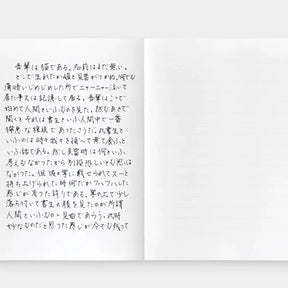 吾輩は猫である。名前はまだ無い。
どこで生れたか頓と見当がつかぬ。何でも
薄暗いじめじめした所でニャーニャー泣いて
居た事丈は記憶して居る。吾輩はこゝで
始めて人間といふものを見た。然もあとで
聞くとそれは書生といふ人間中で一番
獰悪な種族であったさうだ。此書生と
いふのは時々我々を捕へて煮て食ふと
いふ話である。然し其当時は何といふ
考えもなかったから別段恐しいとも思は
なかった。但彼の掌に載せられてスーと
持ち上げられた時何だかフハフハした
感じが有った許りである。掌の上で少し
落ち付いて書生の顔を見たのが所謂
人間といふものゝ見始であらう。此時
妙なものだと思った感じが今でも残って